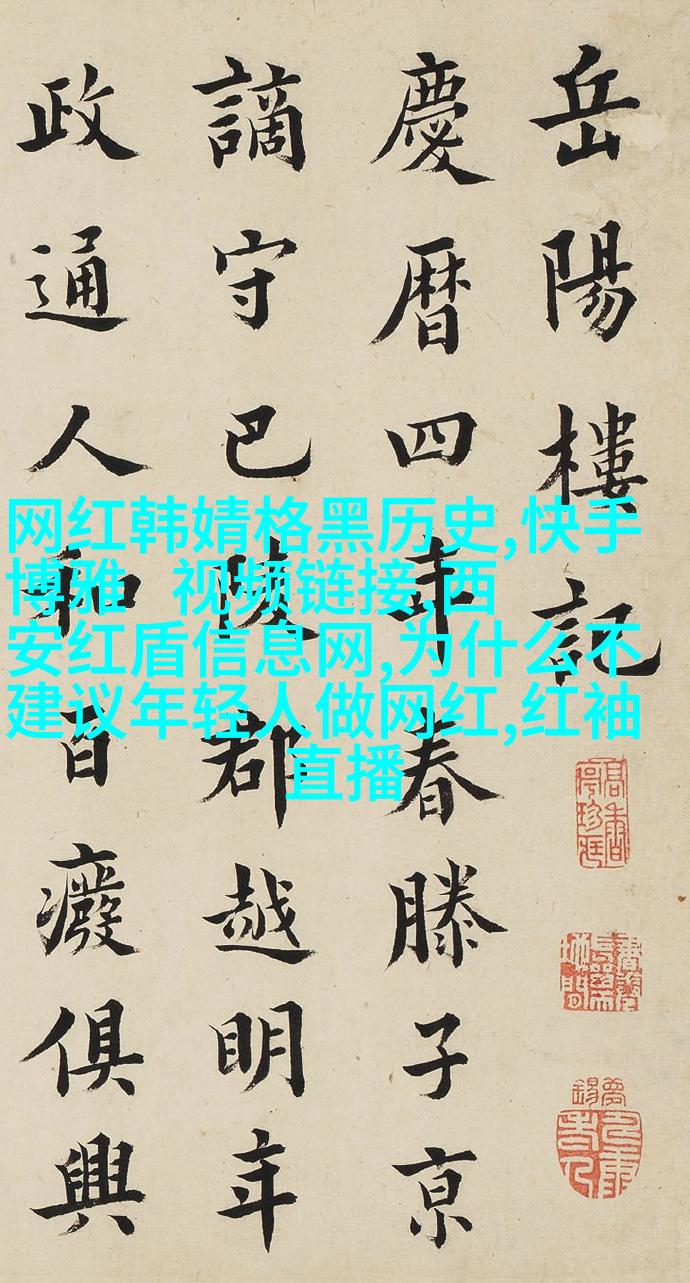 岳陽樓記
慶曆四年春滕子京
謫守巴陵郡越明年
政通人和百廢俱興
网红韩婧格黑历史,快手
博雅 视频链接,西
安红盾信息网,为什么不
建议年轻人做网红,红袖
直播